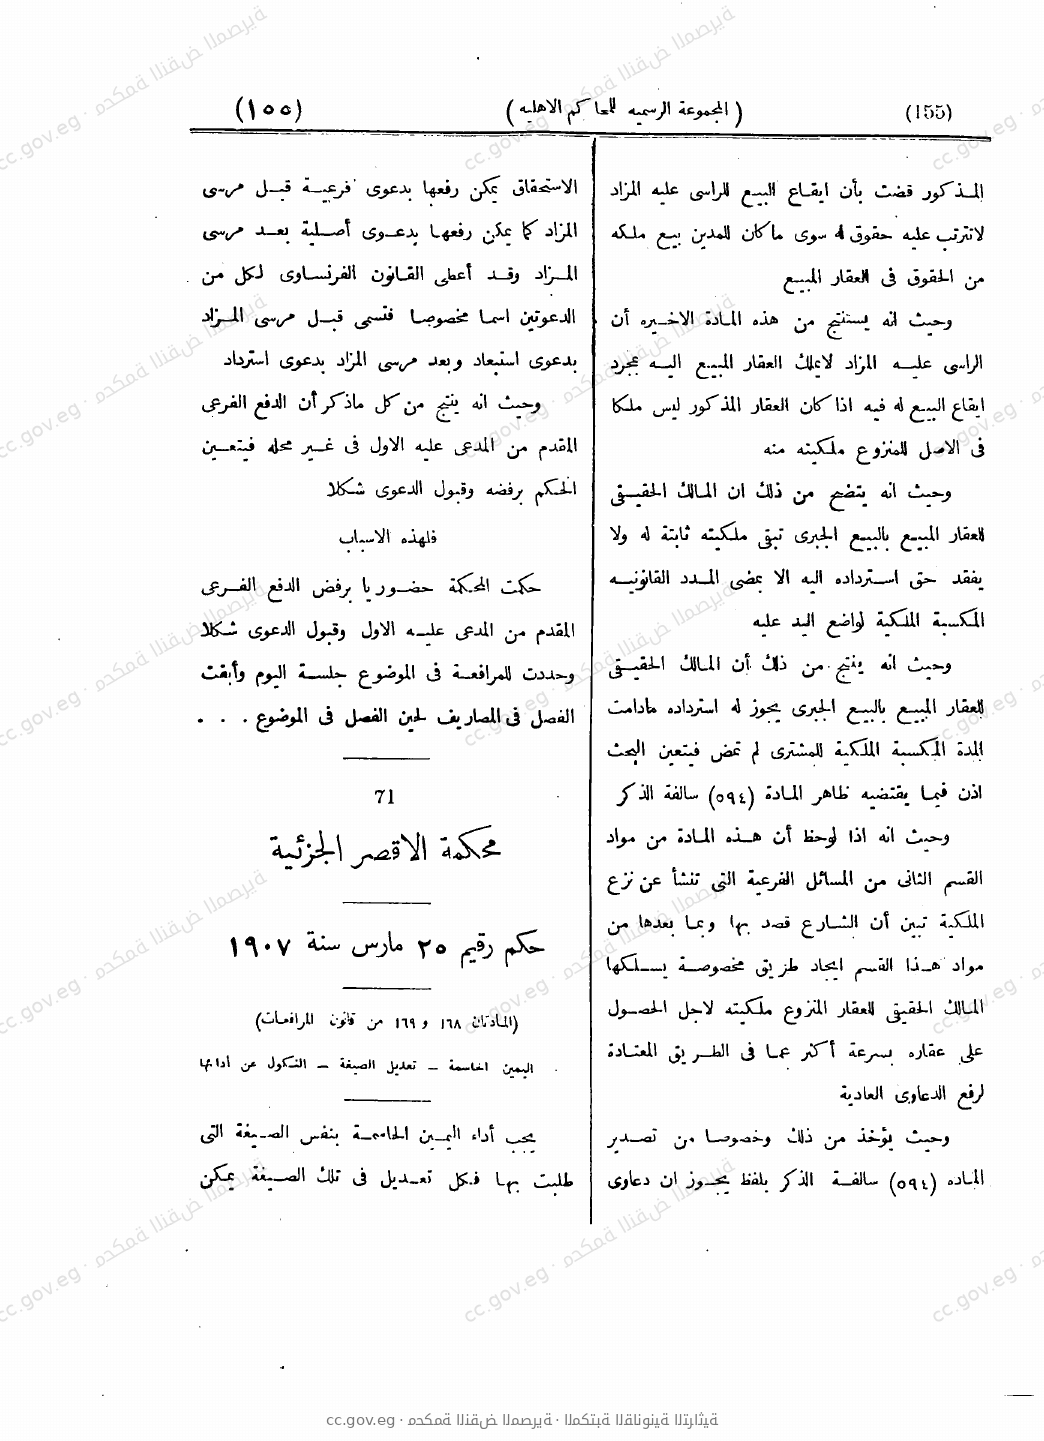 (155)
(المجموعة الرسميه للمحاكم الاهليه)
(١٥٥)
المـذكور قضت بأن ايقـاع البيع للراسى عليه المزاد
لاتترتب عليه حقوق له سوى ماكان للمدين بيع ملكه
من الحقوق فى العقار المبيع
وحيث انه يستنتج من هذه المـادة الاخـيره أن
الراسى عليـه المزاد لايملك العقار المبيع اليـه بمجرد
ايقاع البيع له فيه اذا كان العقار المذكور ليس ملكا
فى الاصل للمنزوع ملكيته منه
وحيث انه يتضح من ذلك ان المالك الحقيـقى
للعقار المبيع بالبيع الجبرى تبقى ملكيته ثابتة له ولا
يفقد حق استرداده اليه الا بمضى المـدد القانونيـه
المكسبة الملكية لواضع اليد عليه
وحيث انه ينتج من ذلك أن المالك الحقيـقى
للعقار المبيع بالبيع الجبرى يجوز له استرداده مادامت
المدة المكسبة الملكية للمشترى لم تمض فيتعين البحث
اذن فيما يقتضيه ظاهر المادة (٥٩٤) سالفة الذكر
وحيث انه اذا لوحظ أن هـذه المـادة من مواد
القسم الثانى من المسائل الفرعية التى تنشأ عن نزع
الملكية تبين أن الشـارع قصد بها وبمـا بعدها من
مواد هـذا القسم ايجاد طريق مخصوصـة يسـلكها
المـالك الحقيقى للعقار المنزوع ملكيته لاجل الحصـول
على عقاره بسرعة أكثر عمـا فى الطـريق المعتـادة
لرفع الدعاوى العادية
وحيث يؤخذ من ذلك وخصوصا من تصـدير
المـاده (٥٩٤) سالفـة الذكر بلفظ يجـوز ان دعاوى
الاستحقاق يمكن رفعها بدعوى فرعيـة قبـل مرسى
المزاد كما يمكن رفعهـا بدعـوى أصـلية بعـد مرسى
المـزاد وقـد أعطى القـانون الفرنسـاوى لكل من
الدعوتين اسما مخصوصـا فتسمى قبـل مرسى المـزاد
بدعوى استبعاد وبعد مرسى المزاد بدعوى استرداد
وحيث انه ينتج من كل ماذكر أن الدفع الفرعى
المقدم من المدعى عليه الاول فى غـير محله فيتعـين
الحكم برفضه وقبول الدعوى شكلا
فلهذه الاسباب
حكمت المحكمة حضـوريا برفض الدفع الفـرعى
المقدم من المدعى عليـه الاول وقبول الدعوى شكلا
وحددت للمرافعـة فى الموضوع جلسـة اليوم وأبقت
الفصل فى المصاريف لحين الفصل فى الموضوع . . .
71
محكمة الاقصر الجزئية
حكم رقيم ٢٥ مارس سنة ١٩٠٧
(المـادتان ١٦٨ و ١٦٩ من قانون المرافعـات)
اليمين الحاسمة ــ تعديل الصيغة ــ النكول عن أدائها
يجب أداء اليمـين الحاسمـة بنفس الصـيغة التى
طلبت بهـا فـكل تعـديل فى تلك الصـيغة يمكن
cc.gov.eg · محكمة النقض المصرية · المكتبة القانونية التراثية